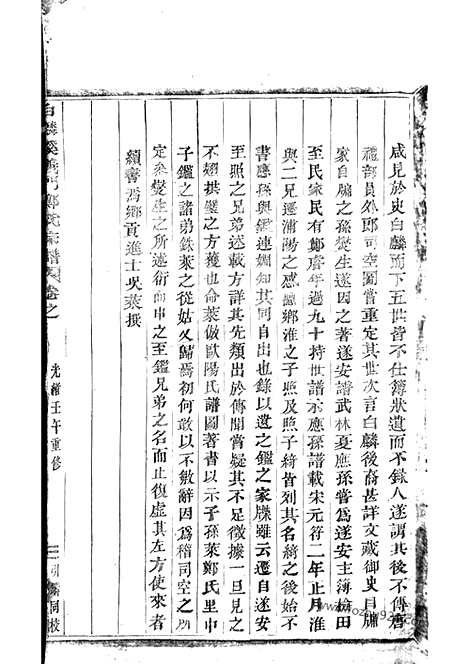 咸見於史白麟而下五世皆不仕簿狀遺而不錄人遂謂其後不傳唐
禮部員外郎司空圖嘗重定其世次言白麟後裔甚詳文藏御史自牖
家自牖之孫燮生遂因之著遂安譜武林夏應孫嘗為遂安主簿檢田
至民家民有鄭唐年過九十持世譜示應孫譜載宋元符二年正月淮
與二兄遷浦陽之感德鄉淮之子照及照子綺皆列其名綺之後始不
書應孫與鑑連姻知其同自出也錄以遺之鑑之家牒雖云遷自遂安
至照之兄弟迷載方詳其先類出於傳聞嘗疑其不足徵據一旦見之
不翅拱璧之方獲也命萊倣歐陽氏譜圖著書以示子孫萊鄭氏里中
子鑑之諸弟銖萊之從姑又歸焉初何敢以不敏辭因為稽司空之所
定叅燮生之所述衍而申之至鑑兄弟之名而止復虛其左方使來者
續書焉鄉貢進士吳萊撰
白麟溪義門鄭氏宗譜 卷之一
光緒壬午重修